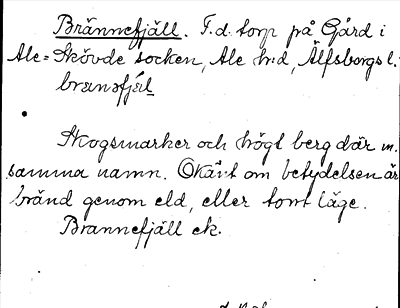 Brännefjäll. F.d. torp på Gård i
Ale=Skövde socken, Ale hd, Älfsborgs l.
brænəfjæl
Skogsmarker och högt berg där m.
samma namn. Okänt om betydelsen är
bränd genom eld, eller tomt läge.
Brannefjäll ek.